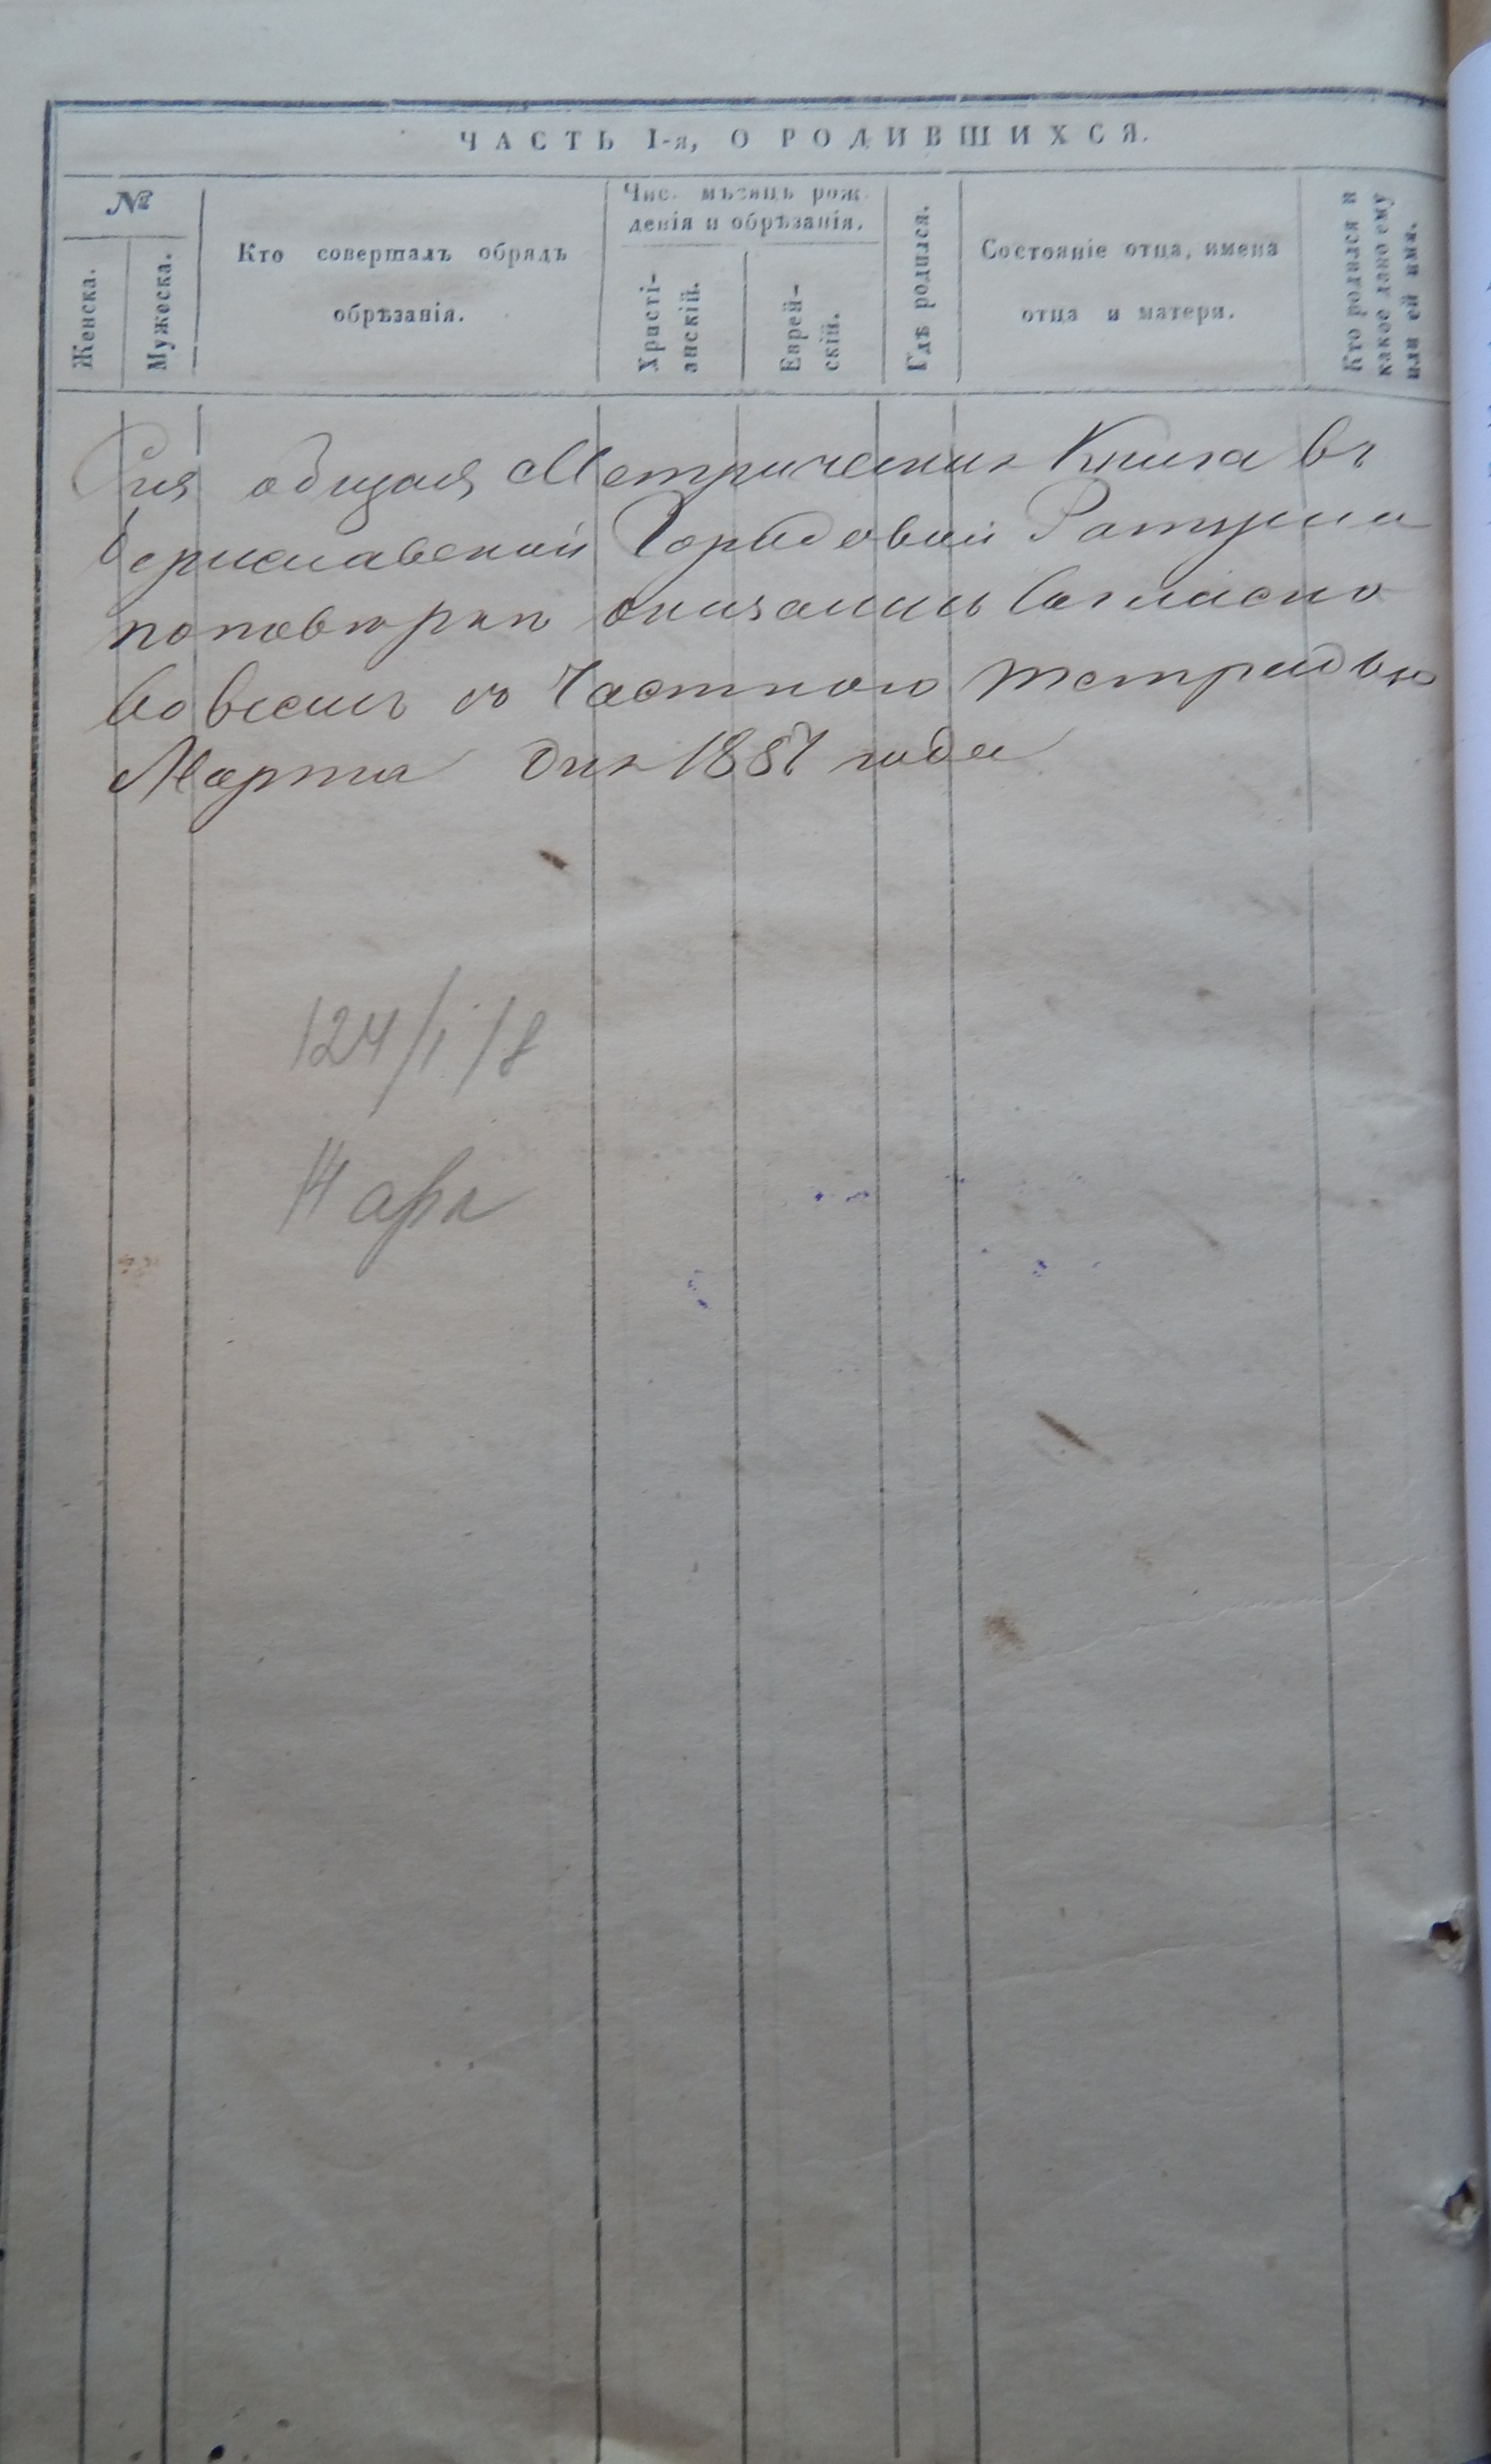 ЧАСТЬ I-я, О РОДИВШИХСЯ.
№
Женска.
Мужеска.
Кто совершалъ обрядъ
обрѣзанія.
Чис. мѣсяцъ рож-
денія и обрѣзанія.
Христі-
анскій.
Еврей-
скій.
Гдѣ родился.
Состояніе отца, имена
отца и матери.
Кто родился и
какое дано ему
или ей имя.
Сия общая Метрическая Книга въ
Бериславской Городовой Ратуши
по повѣрки оказалась Согласно
во всемъ съ Частною тетрадью
Марта дня 1887 года
124/1/8
14 арк